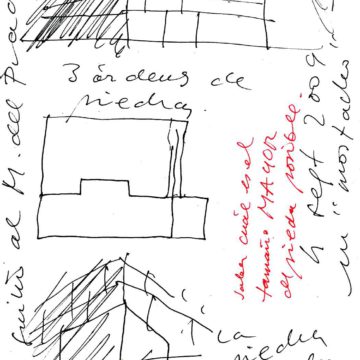 3 órdenes de
piedra.
al M. del Prado
saber cuál es el
tamaño MAYOR
de piedra posible.
4 sept 2009
en "mostrador
La
piedra